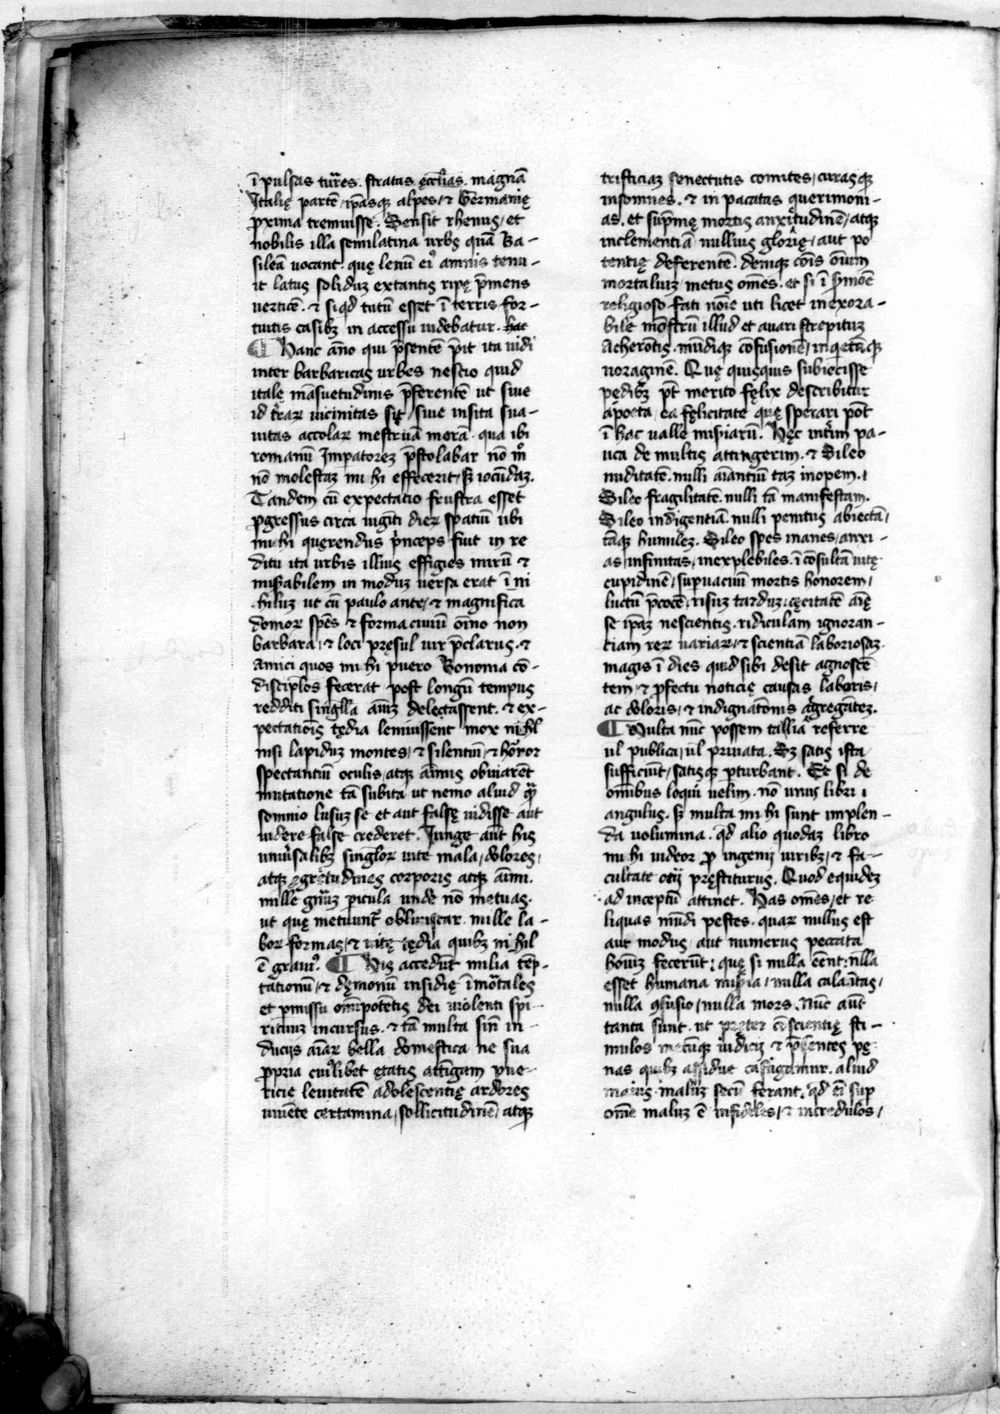 ī pulsas turres. stratas ęccl̄ias. magnā
Italię partē, ip̄asq; alpes, & Germanię
ꝓxima tremuisse. Sensit rhenus, et
nobilis illa semilatina urbs quā Ba-
sileā uocant. quę lenū ei⁹ amnis tenu-
it latus soliduz extantis ripę p̄mens
uerticē. & siqd tutū esset ī terris for-
tuitis casibz in accessu uidebatur. hac
¶ Hanc āno qui p̄sentē p̄it ita uidi
inter barbaricas urbes nescio quid
italę māsuetudinis p̄ferentē ut siue
id t̄rar uicinitas sit, siue insita sua-
uitas accolar mestruā morā. qua ibi
romanū Imꝑatorez p̄stolabar nō m̄
nō molestaz mi hi effecerit, sz iocūdaz.
Tandem cū expectatio frustra esset
ꝓgressus circa uigīti diez spatiū ubi
mi hi quęrendus p̄nceps fuit in re
ditu ita urbis illius effigies mirū &
mis̄abilem in moduz uersa erat ī ni
hiluz ut cū paulo ante, & magnifica
domor sp̄es & forma ciuiū oīno non
barbara, & loci pręsul uir p̄clarus. &
amici quos mi hi puero Bononia cō-
discip̄los fecerat post longū tempus
redditi singl̄la aīuz delęctassent. & ex-
pectatiōis tędia leniuissent mox nihl̄
nisi lapiduz montes, & silentiū, & hōror
spectantiū oculis, atq; aīmis obuiarēt
mutatione tā subita ut nemo aliud qͣ̄
somnio lusuz se et aut falsę uidisse aut
uidere false crederet. Iunge aūt his
uniūsalibz singlor uite mala, dolores,
atq; ęgritudines corporis atq; aīmi.
mille gn̄uz ꝑicula unde nō metuas.
ut quę metuunt̄ obliuiscar. mille la-
bor formas, & uitę tędia quibz ni hil
ē graui⁹. ¶ His accedūt milia tēp-
tationū, & dęmonū insidię īmōtales
et ꝑmissu om̄ipotētis dei uiolenti spi-
rituuz incursus. & tā multa sin̄ in-
ducijs aīar bella domestica. ne sua
ꝓpria cui⁹libet ętatis attīgam pue-
ricie leuitatē adolescentię ardores
uiuēte certamina, sollicitudinē, atq;
tristiciaz senectutis comites, curasq;
insomnes. & in pacatas querimoni-
as. et sup̄mę mortis anxietudinē, atq;
inclementiā nullius glorię, aut po
tentię deferentē. deniq; cōis oīum
mortaliuz, metus omēs. et si ī s̄moē
religioso fati noīe uti licet inexora-
bile mōstrū illud et auari strepituz
Acherōtis. mūdiq; cōfusionē, inqetāq;
uoraginē. Quę quisquis subiecisse
pędibz p̄t merito fęlix describitur
apoeta, ea fęlicitate quę sperari pōt
ī hac ualle misiarū. Hęc int̄im pa-
uca de multis attingerim. & Sileo
nuditatē. nulli aīantiū taz inopem. &
Sileo fragilitatē. nulli tā manifestam.
Sileo indigentiā. nulli penitus abiectā,
tāq; humilez. Sileo spes inanes, anxi-
as, infinitas, inexplebiles. ī cōsultā uitę
cupidinē, supuacuū mortis honorem,
luctū p̄cocē, risuz tarduz, cęcitatē aīę
se ip̄az nescientis. ridiculam ignoran-
tiam rer uariar, & scientiā laboriosaz.
magis ī dies quid sibi desit agnoscē
tem, & ꝓfectu noticię causas laboris,
ac doloris, & indignatōnis agregātez.
¶ Multa nūc possem tallia referre
ul publica, ul priuata. Sz satis ista
sufficiūt, satisq; ꝑturbant. Et si de
omībus loqui uelim. nō unus libri ī
angulus. sz multa mi hi sunt implen-
da uolumina. qd alio quodaz libro
mi hi uideor ꝓ ingenij uiribz, & fa-
cultate otij pręstiturus. Quod equidez
ad inceptū attinet. Has omēs, et re
liquas mūdi pestes. quar nullus est
aut modus, aut numerus peccata
hoīuz fecerūt; quę si nulla eēnt; nlla
esset humana mis̄ia, nulla calaītas,
nulla ꝯfusio, nulla mors. Nūc aūt
tanta sunt. ut pręter cōscientię sti-
mulos metūq; iudicij & p̄sentes pę
nas quibz assidue castigamur. aliud
maius maluz secū ferant. qd eī sup
omē maluz ē infideles, & incredulos,